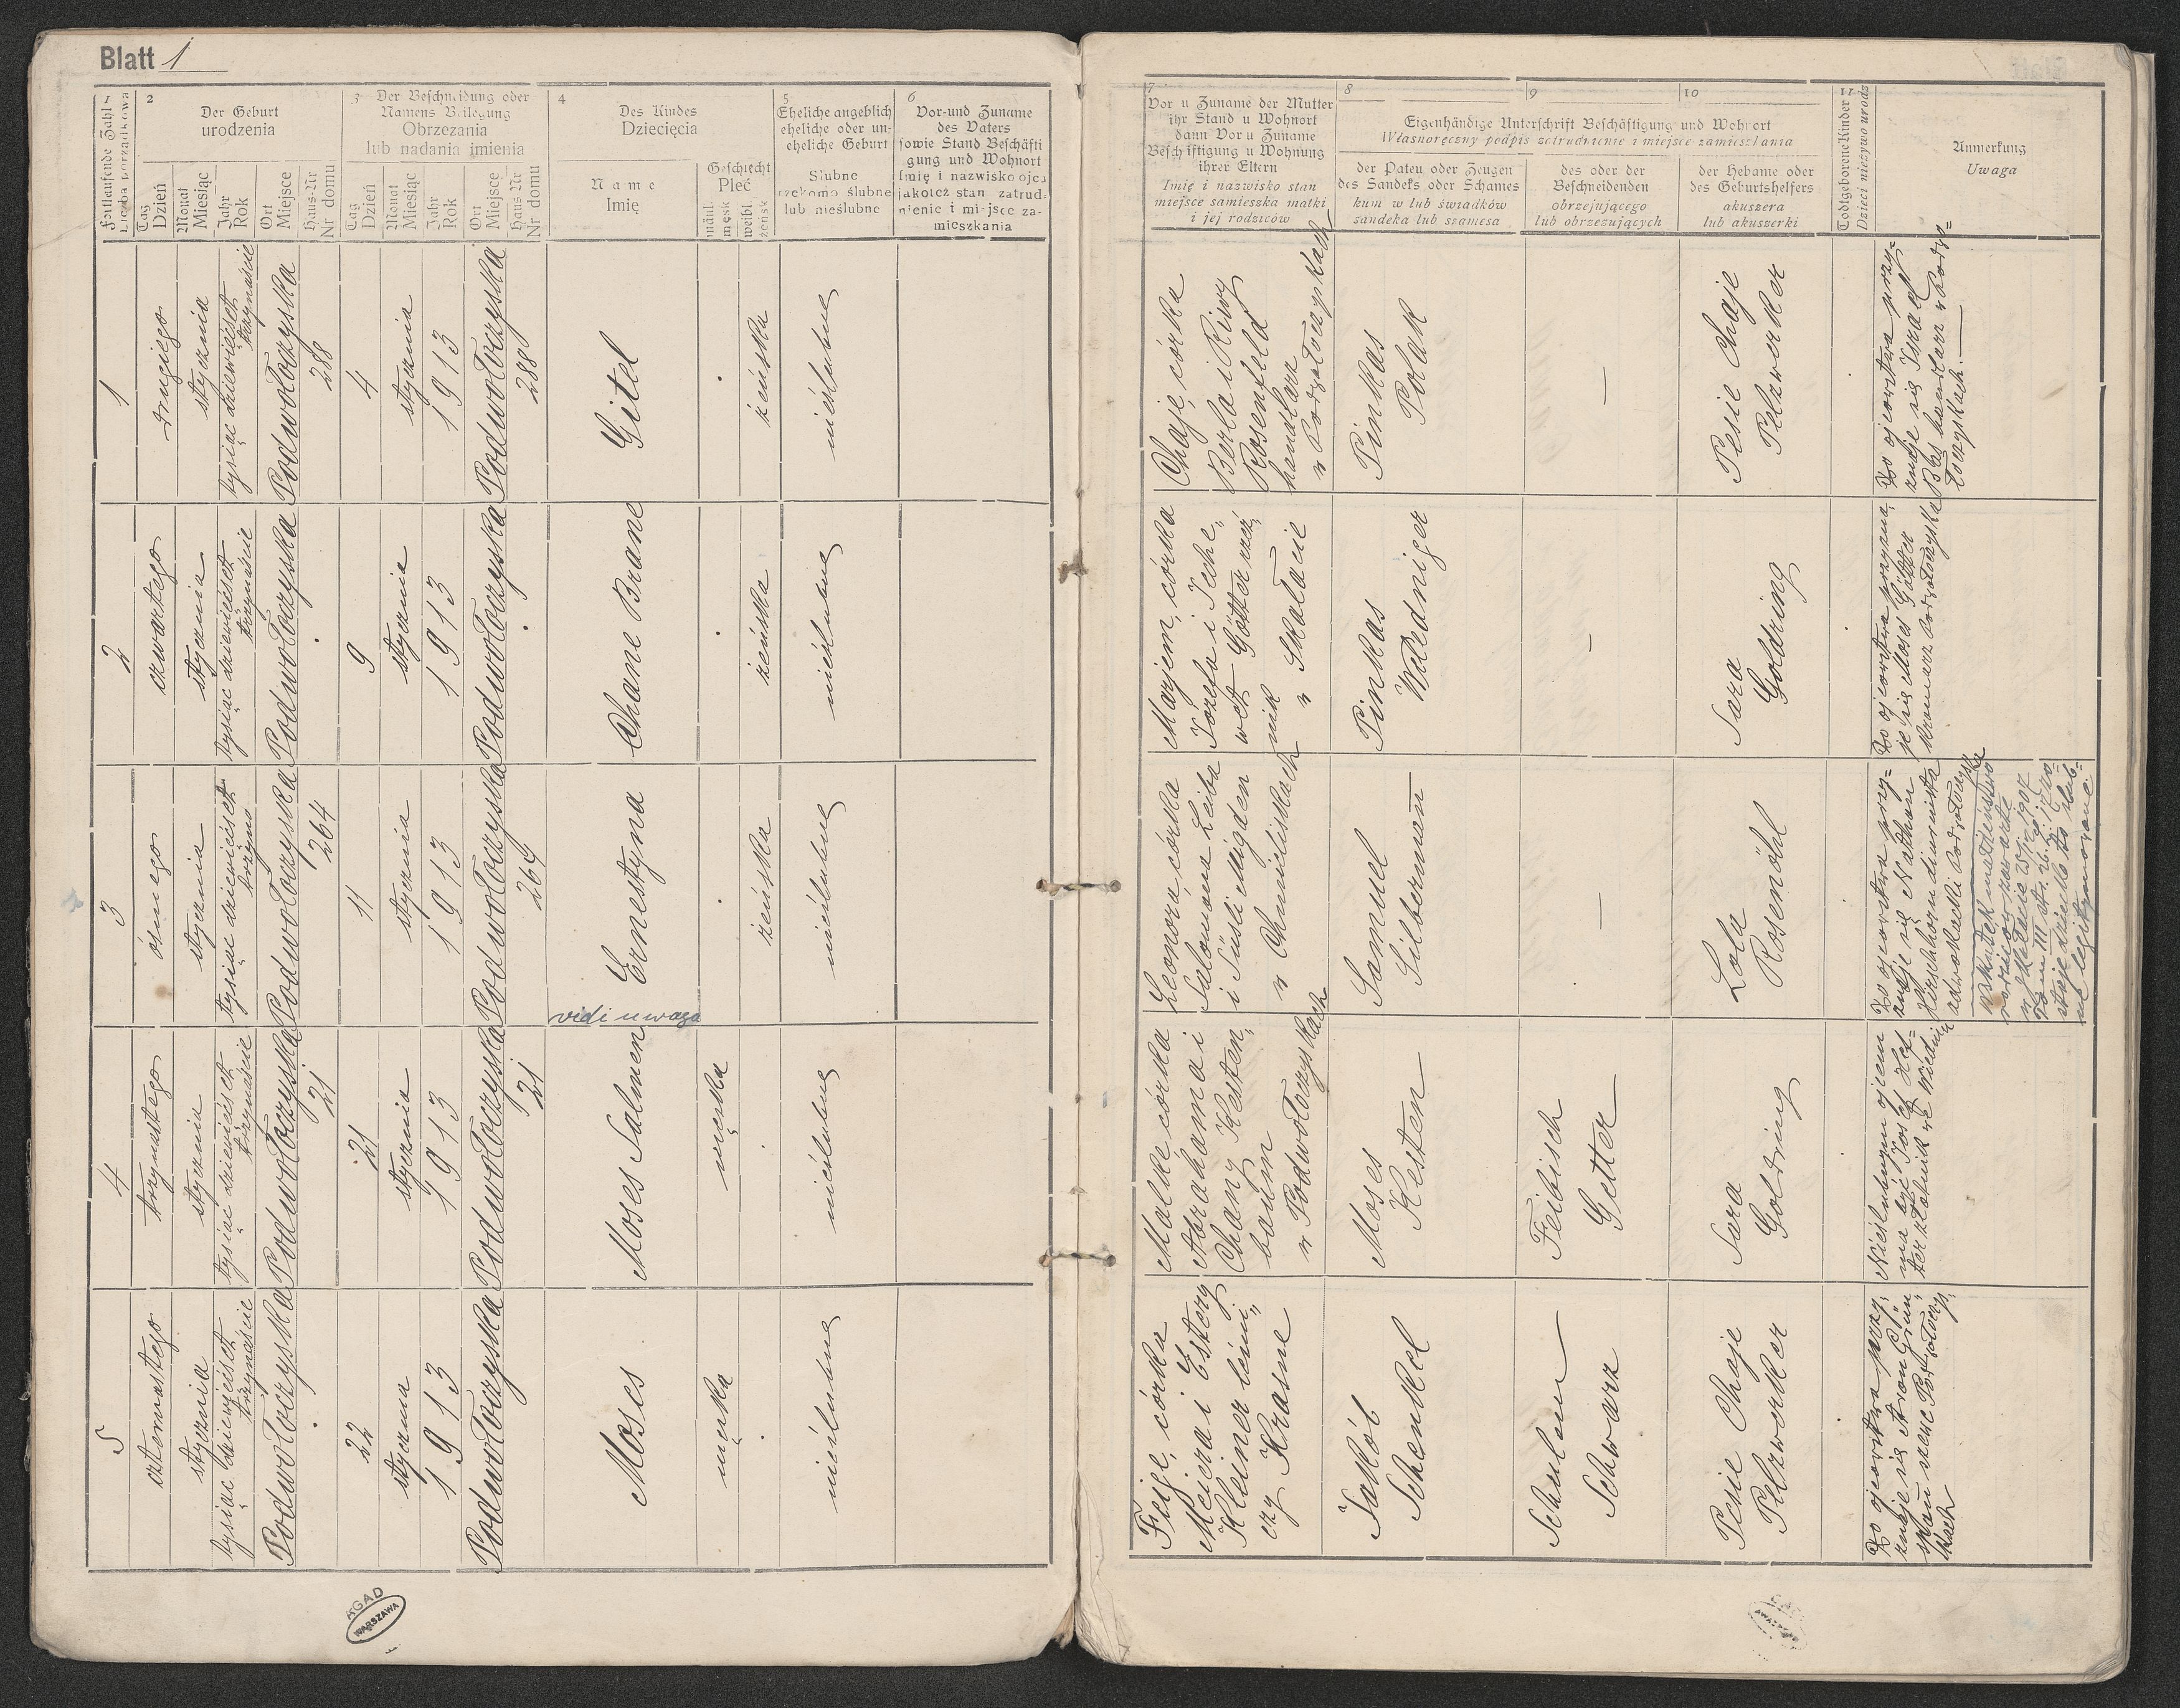 Blatt 1
Fortlaufende Zahl
Liczba porządkowa
2
Der Geburt
urodzenia
Tag
Dzień
Monat
Miesiąc
Jahr
Rok
Ort
Miejsce
Haus-Nr
Nr domu
3
Der Beschneidung oder
Namens Beilegung
Obrzezania
lub nadania imienia
Tag
Dzień
Monat
Miesiąc
Jahr
Rok
Ort
Miejsce
Haus Nr
Nr domu
4
Des Kindes
Dziecięcia
Name
Imię
Geschlecht
Płeć
männl
męsk
weibl.
żeńsk
5
Eheliche angeblich
eheliche oder un-
eheliche Geburt
Ślubne
rzekomo ślubne
lub nieślubne
6
Vor-und Zuname
des Vaters
sowie Stand Beschäfti
gung und Wohnort
Imię i nazwisko ojca
jakoteż stan zatrud-
nienie i miejsce za-
mieszkania
7
Vor u Zuname der Mutter
ihr Stand u Wohnort
dann Vor u Zuname
Beschäftigung u Wohnung
ihrer Eltern
Imię i nazwisko stan
miejsce zamieszka matki
i jej rodziców
8
9
10
Eigenhändige Unterschrift Beschäftigung und Wohnort
Własnoręczny podpis zatrudnienie i miejsce zamieszkania
der Paten oder Zeugen
des Sandeks oder Schames
kum w lub świadków
sandeka lub szamesa
des oder der
Beschneidenden
obrzezującego
lub obrzezujących
der Hebame oder
des Geburtshelfers
akuszera
lub akuszerki
11
Todtgeborene Kinder
Dzieci nieżywo urodz
Anmerkung
Uwaga
1
drugiego
stycznia
tysiąc dziewięćset
trzynaście
Podwołoczyska
288
4
stycznia
1913
Podwołoczyska
288
Gitel
żeńska
nieślubne
Chaje, córka
Berla i Riwy
Rosenfeld
handlarz
w Podwołoczyskach
Pinkas
Polak
—
Pesie Chaje
Pelzworker
Do ojcostwa przy-
znaje się Israel
handlarz w Podwo-
łoczyskach.—
2
czwartego
stycznia
tysiąc dziewięćset
trzynaście
Podwołoczyska
9
stycznia
1913
Podwołoczyska
Chane Brane
żeńska
nieślubne
Marjem, córka
Józefa i Jeche
wet Götter rzeź
nik
w Skałacie
Pinkas
Woledniger
—
Sara
Goldring
Do ojcostwa przyzna
je się Moses Götter
Podwołoczyska
3
ósmego
stycznia
tysiąc dziewięćset
trzyna
Podwołoczyska
264
11
stycznia
1913
Podwołoczyska
264
Ernestyna
vidi uwaga
żeńska
nieślubne
Leonora, córka
Salomona Leiba
i Süsli Migden
w Chmieliskach
Samuel
Silbermann
—
Lola
Rosenöhl
Do ojcostwa przy-
znaje się Nathan
Hirschhorn diurnista
adwokacki Podwołoczyska
Wskutek małżeństwa
rodziców zawarte
w Skałacie
staje dziecko to ślub-
ne legitymowane
4
trzynastego
stycznia
tysiąc dziewięćset
trzynaście
Podwołoczyska
21
21
stycznia
1913
Podwołoczyska
21
Moses Salmen
męska
nieślubne
Malke córka
Abrahama i
Chany Kesten
baum
w Podwołoczyskach
Moses
Kesten
Feibisch
Getter
Sara
Goldring
Nieślubnym ojcem
ma być Josef
we Wiedniu
5
czternastego
stycznia
tysiąc dziewięćset
trzynaście
Podwołoczyska
22
stycznia
1913
Podwołoczyska
Moses
męska
nieślubne
Feige, córka
Meiera i Estery
Kleiner leśni
czy Krasne
Jakób
Schenkel
Schulem
Schwarz
Pesie Chaje
Pelzworker
Do ojcostwa przy
znaje się Aron Grün
szewc Podwołoczy
skach
AGAD
WARSZAWA